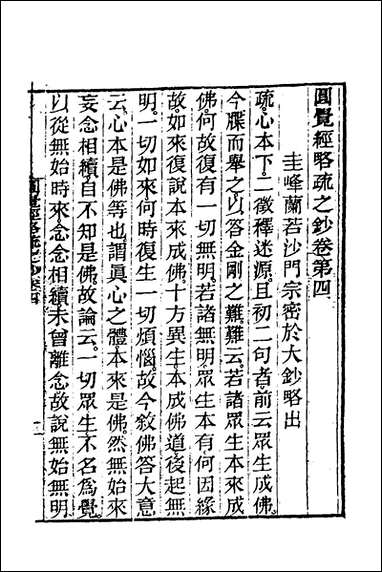 圓覺經略疏之鈔卷第四
圭峰蘭若沙門宗密於大鈔略出
疏心本下二徵釋迷源且初二句者前云眾生成佛
今牒而舉之以答金剛之難難云若諸眾生本來成
佛何故復有一切無明若諸無明眾生本有何因緣
故如來復說本來成佛十方異生本成佛道後起無
明一切如來何時復生一切煩惱故今敘佛答大意
云心本是佛等也謂眞心之體本來是佛然無始來
妄念相續自不知是佛故論云一切眾生不名為覺
以從無始時來念念相續未曾離念故說無始無明
圓覺經略疏之鈔卷四
一